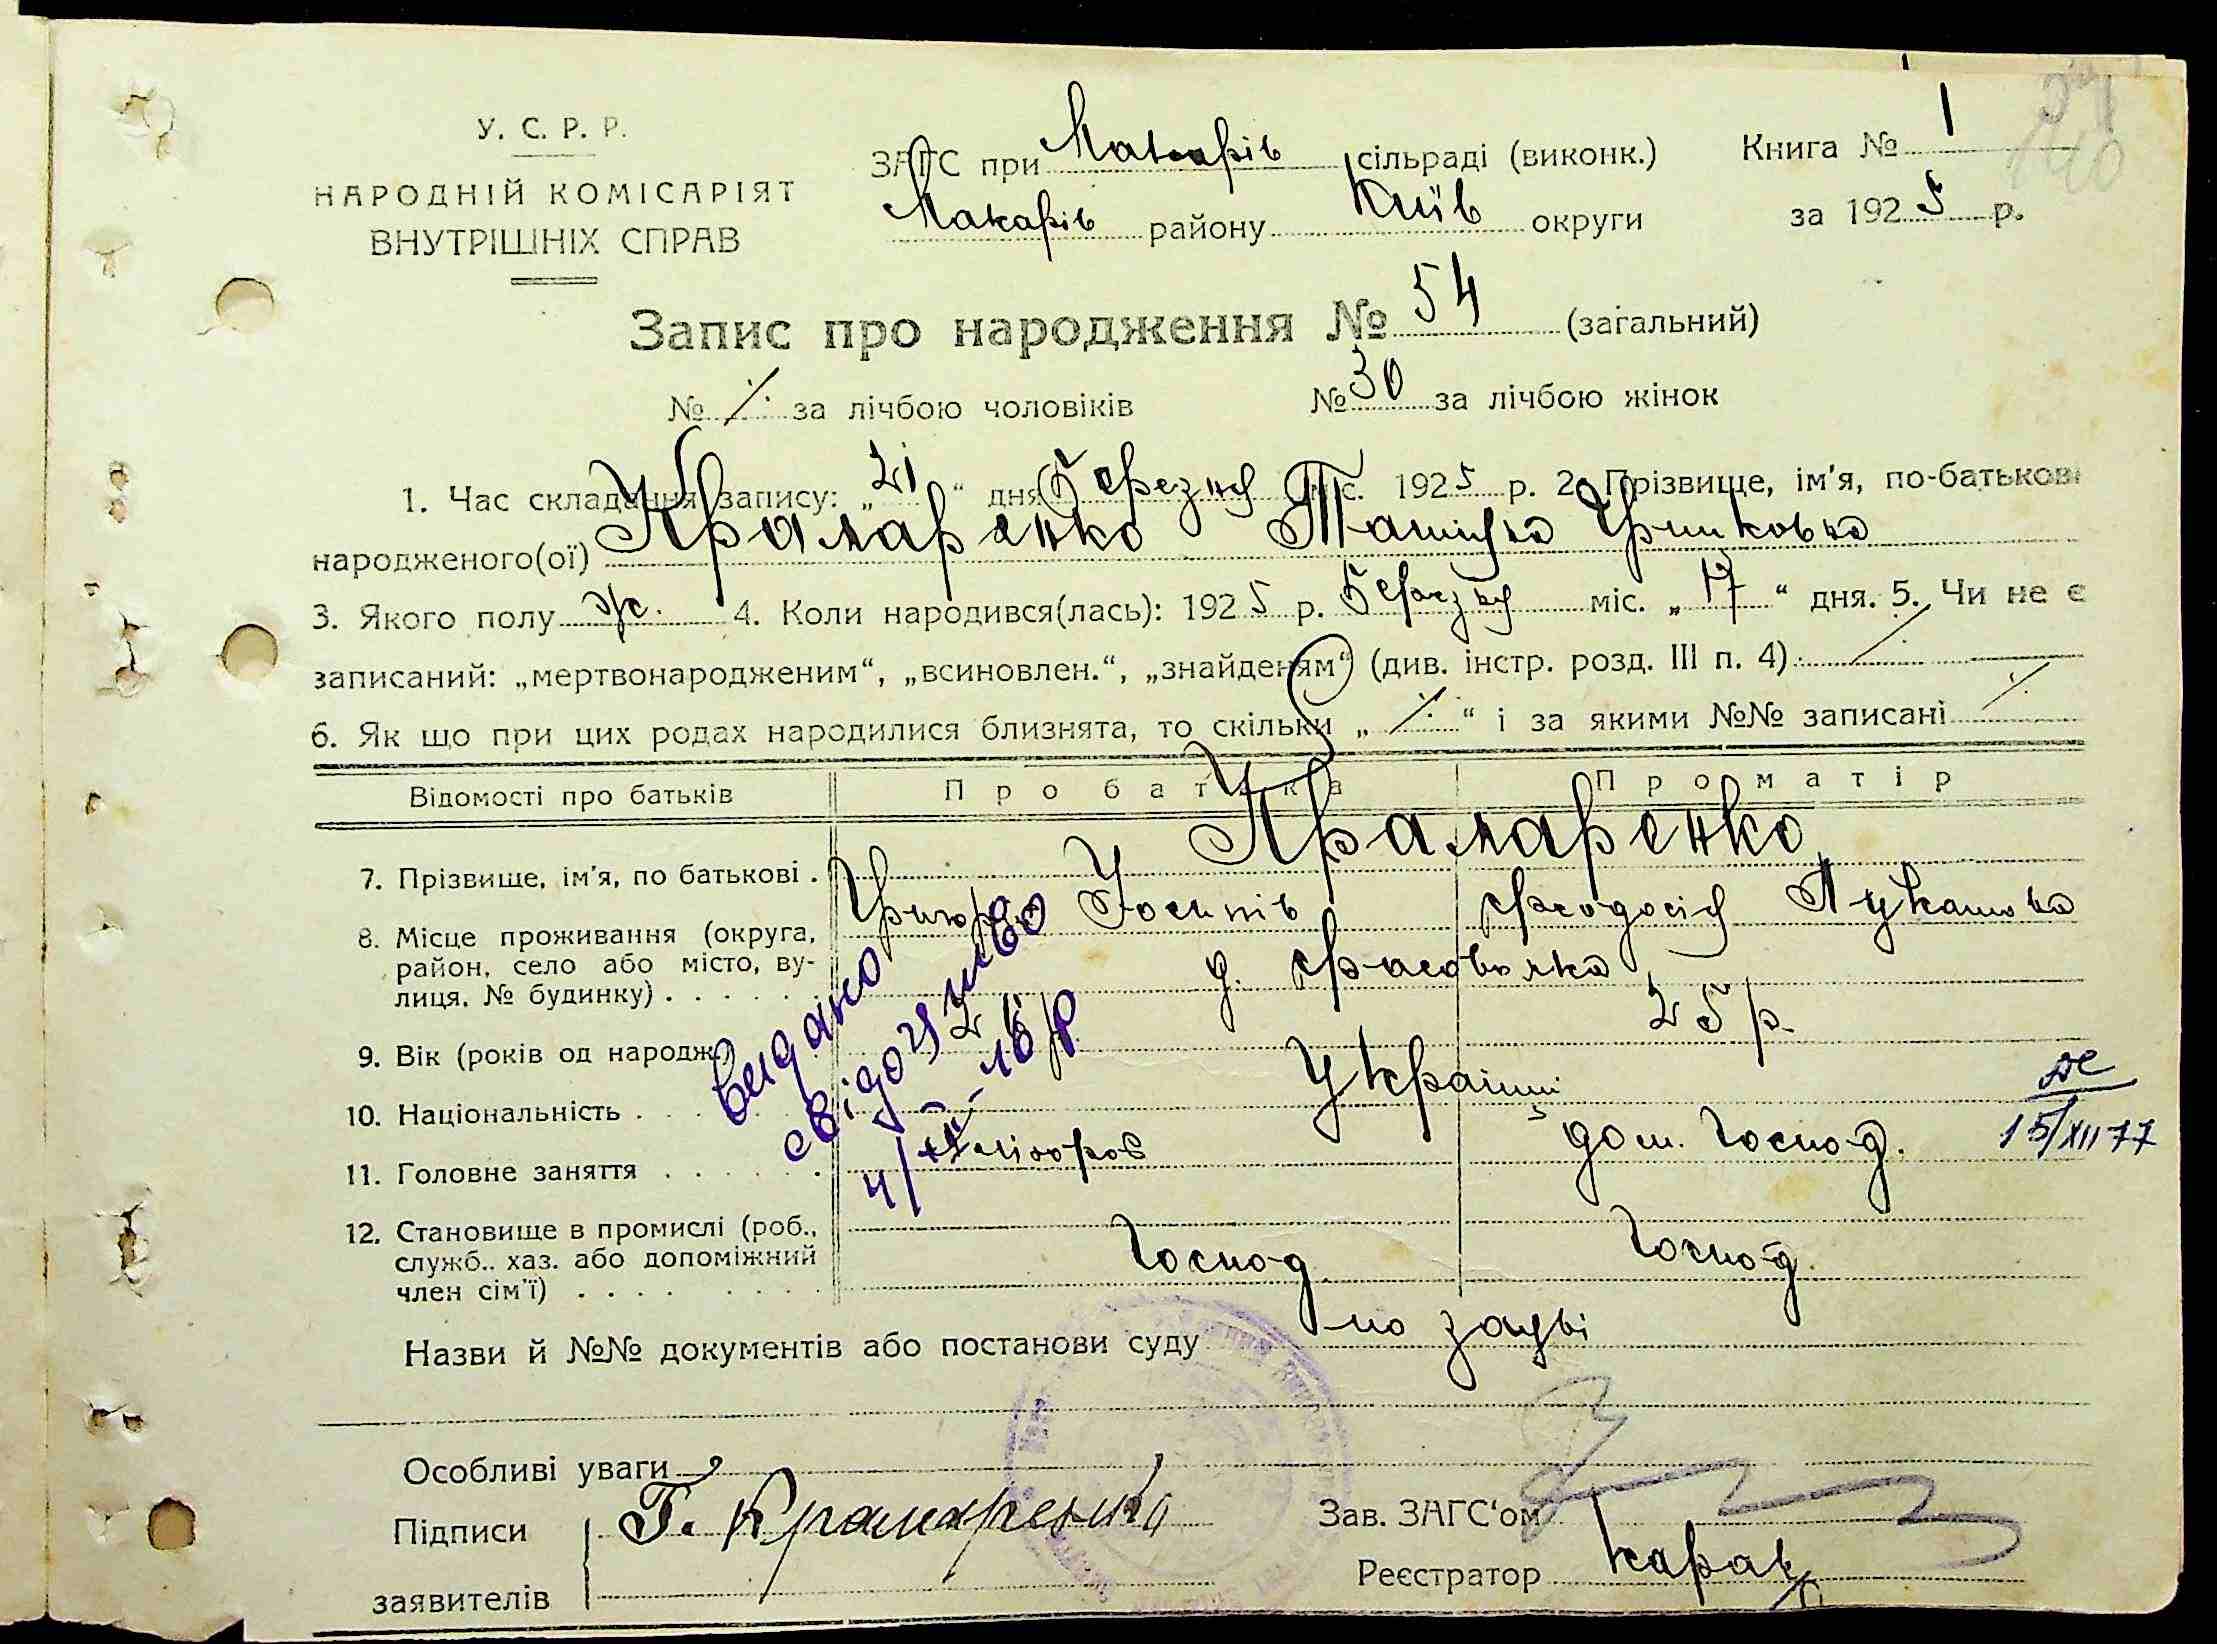 У. С. Р. Р.
НАРОДНІЙ КОМІСАРІЯТ
ВНУТРІШНІХ СПРАВ
ЗАГС при Макарів сільраді (виконк.)
Макарів району Київ округи
Книга № 1
за 1925 р.
Запис про народження № 54 (загальний)
№ ·/· за лічбою чоловіків № 30 за лічбою жінок
1. Час складання запису: „21“ дня березня міс. 1925 р. 2. Прізвище, ім'я, по-батькові
народженого(ої) Крамаренко Грицьковна
3. Якого полу ж. 4. Коли народився(лась): 1925 р. березня міс. „17“ дня. 5. Чи не є
записаний: „мертвонародженим“, „всиновлен.“, „знайденям“ (див. інстр. розд. III п. 4) ·/·
6. Як що при цих родах народилися близнята, то скільки „·/·“ і за якими №№ записані ·/·
Відомості про батьків Про батька Про матір
7. Прізвище, ім'я, по батькові . Крамаренко
Йосипів Феодосія Лукашова
8. Місце проживання (округа,
район, село або місто, ву-
лиця, № будинку) . . . . . д. Фасовочка
9. Вік (років од народж.) 25 р.
10. Національність . Українці
11. Головне заняття . . . . . . хлібороб дом. господ.
12. Становище в промислі (роб.,
служб., хаз. або допоміжний
член сім'ї) . . . . господ господ.
видано
свідоцтво
15/XII 77
Назви й №№ документів або постанови суду по заяві
Особливі уваги
Підписи Г. Крамаренко
заявителів
Зав. ЗАГС'ом
Реєстратор